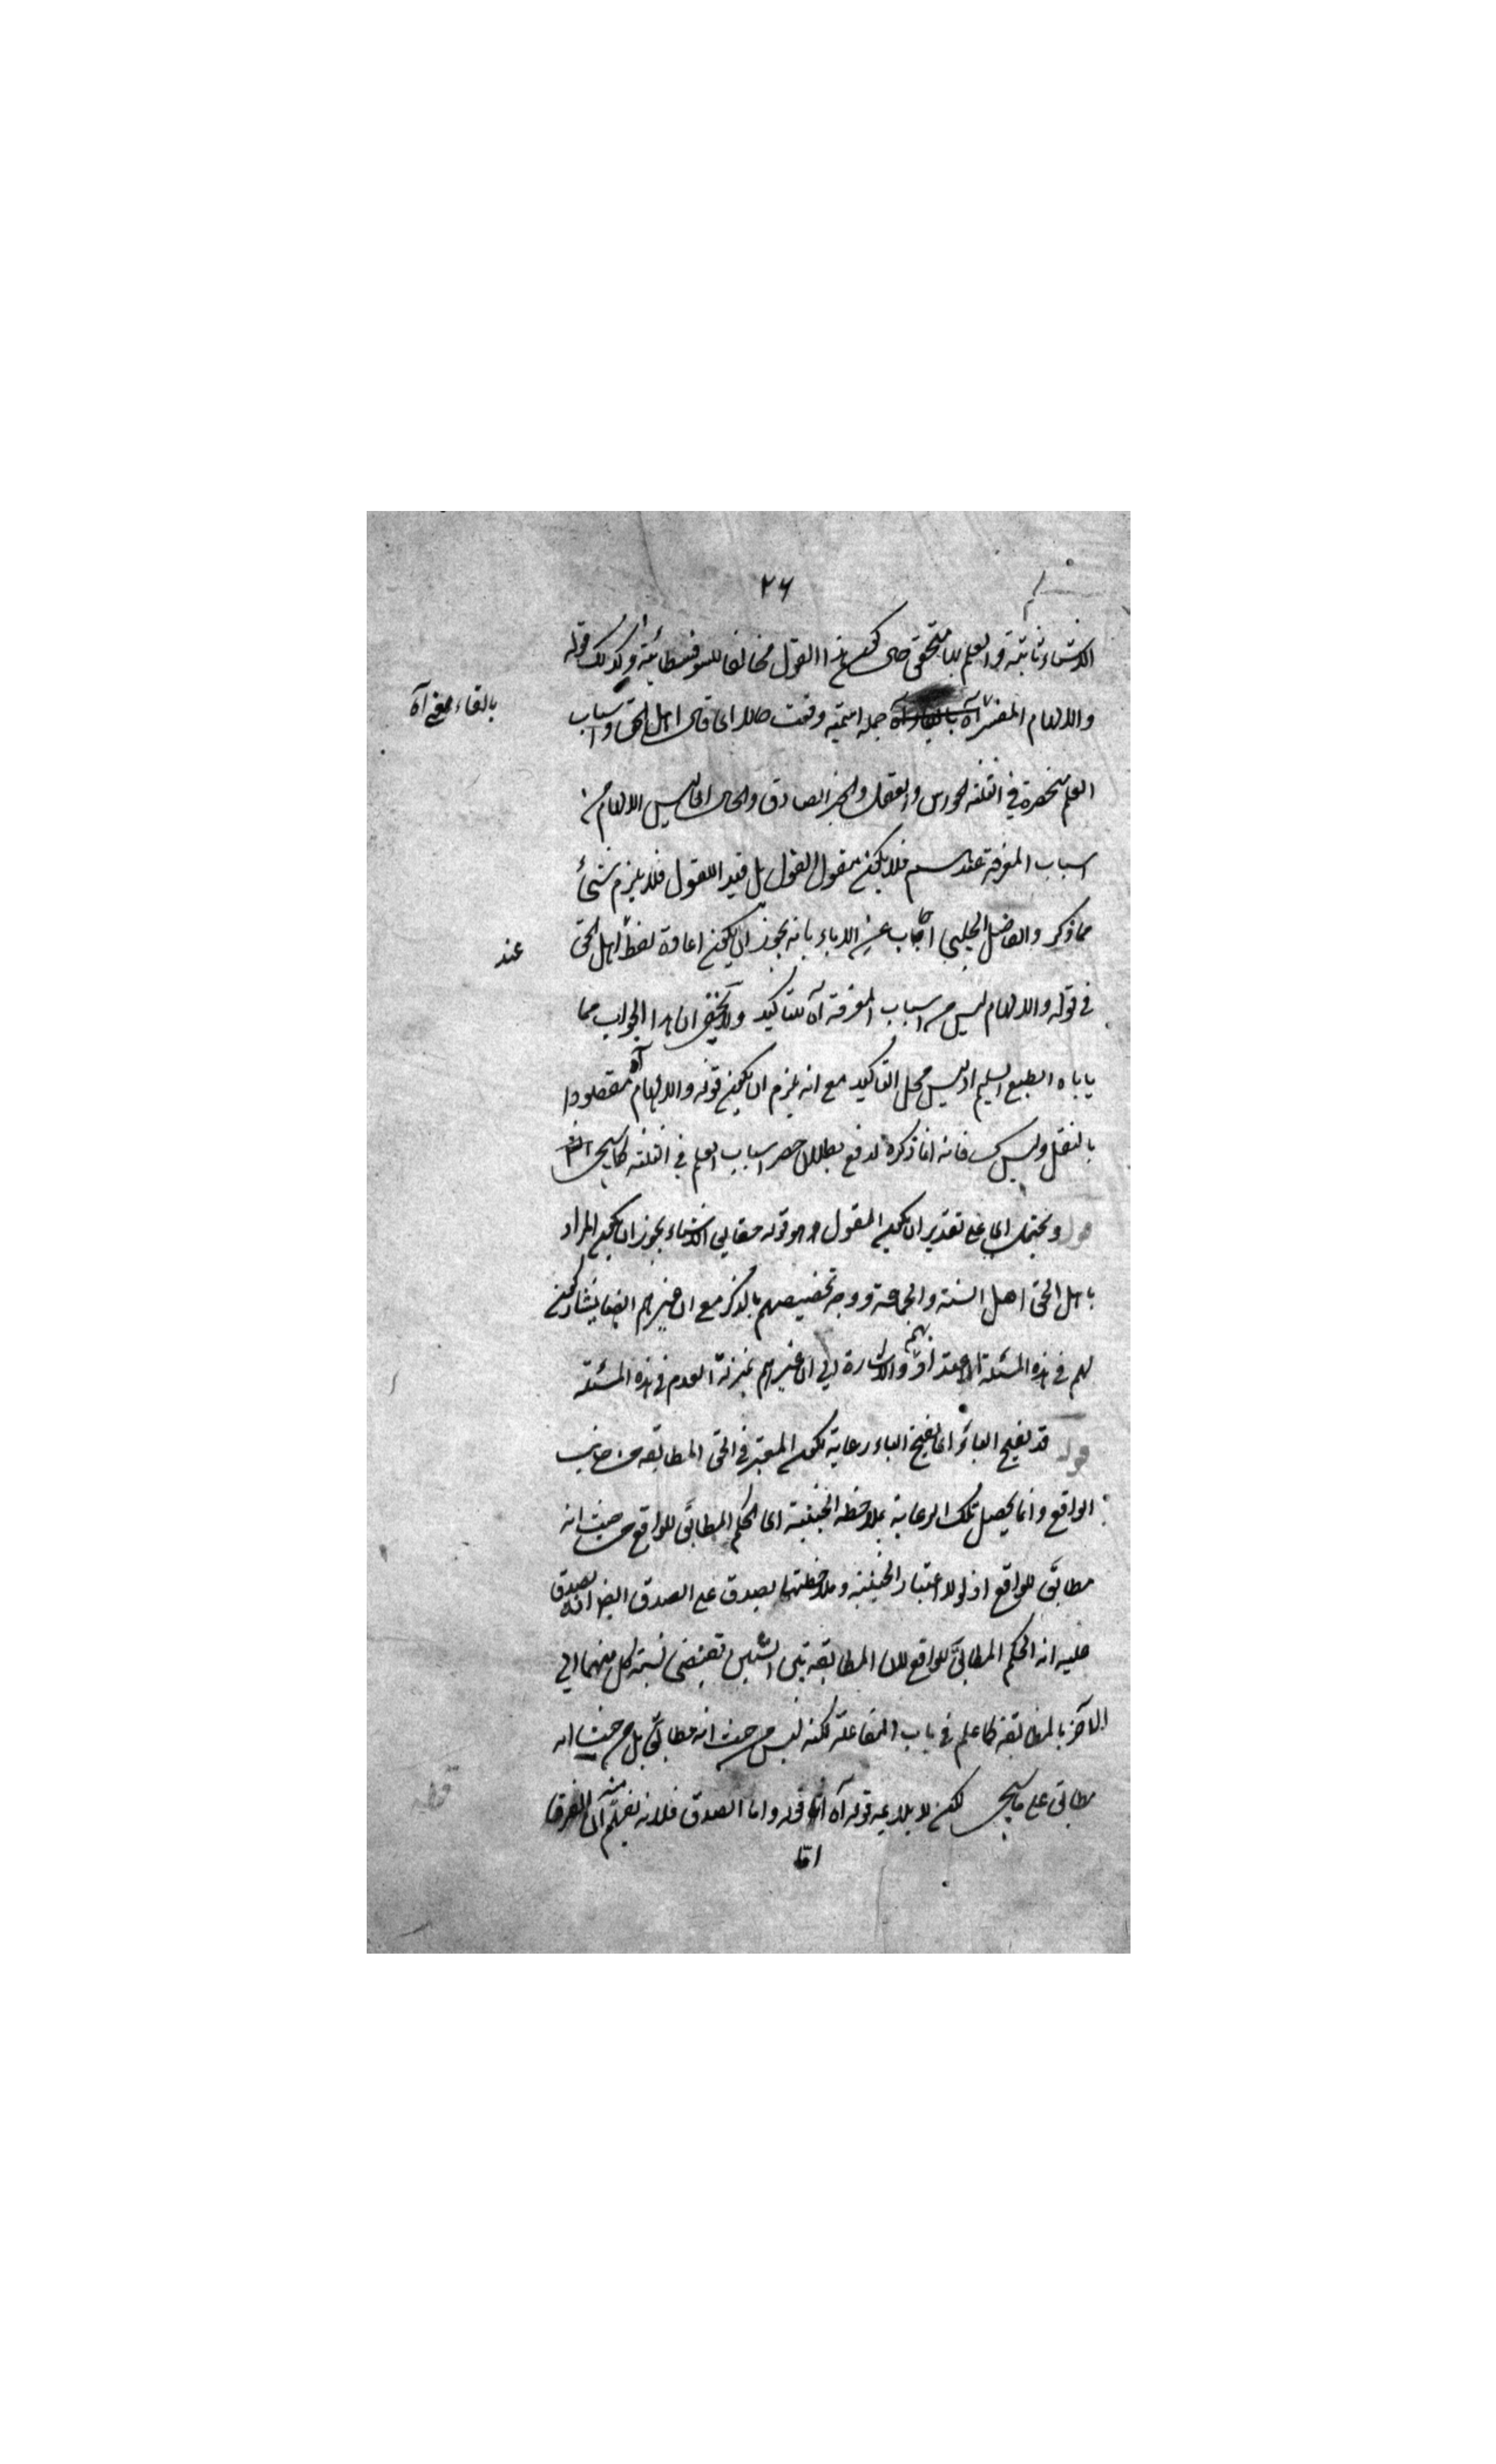 ٢٦
الاشياء ثابتة والعلم بها متحقق حتى يكون هذا القول مخالفا للسوفسطائية وكذلك قوله
والالهام المفسر آه جملة اسمية وقعت حالا اى قال اهل الحق واسباب
بالقاء معنى آه
العلم منحصرة في الثلثة الحواس والعقل والخبر الصادق والحال ان ليس الالهام من
اسباب المعرفة عندهم فلا يكون مقول القول بل قيد اللقول فلا يلزم شئ
مما ذكر والفاضل الچلبى اجاب عن الاباء بانه يجوز ان يكون اعادة لفظ اهل الحق
عند
في قوله والالهام ليس من اسباب المعرفة آه للتاكيد ولا يخفى ان هذا الجواب مما
ياباه الطبع السليم اذ ليس محل التاكيد مع انه يلزم ان يكون قوله والالهام آه مقصودا
بالنقل وليس كك فانه انما ذكره لدفع بطلان حصر اسباب العلم في الثلثة كما سيجئ
قوله ويحتمل اى على تقدير ان يكون المقول هو قوله حقايق الاشياء يجوز ان يكون المراد
باهل الحق اهل السنة والجماعة ووجه تخصيصهم بالذكر مع ان غيرهم ايضا يشاركون
لهم في هذه المسئلة الاعتداد بهم والاشارة الى ان غيرهم بمنزلة العدم في هذه المسئلة
قوله قد يفتح الباء اى يفتح الباء رعاية لكون المعتبر في الحق المطابقة من جانب
الواقع وانما يحصل تلك الرعاية بملاحظة الحيثية اى الحكم المطابق للواقع من حيث انه
مطابق للواقع اذ لولا اعتبار الحيثية وملاحظتها لصدق على الصدق ايضا اذ يصدق
عليه انه الحكم المطابق للواقع لان المطابقة بين الشيئين تقتضى نسبة كل منهما الى
الآخر بالمطابقة كما علم في باب المفاعلة لكنه ليس من حيث انه مطابق بل من حيث انه
مطابق على ما سيجئ لكن لا يلايمه قوله آه اى قوله واما الصدق فلانه يفهم منه ان الفرق
اما